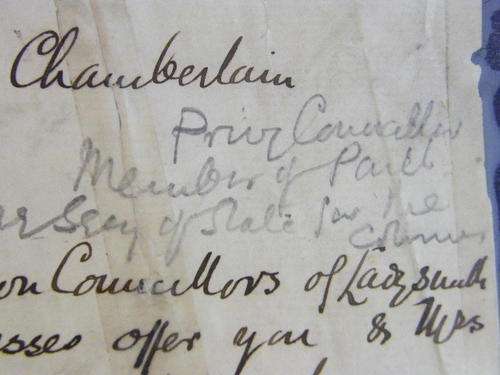 Chamberlain
Privy Councillor
Member of Parlt
Secy of State for the
Colonies
Councillors of Ladysmith
offer you & Mrs